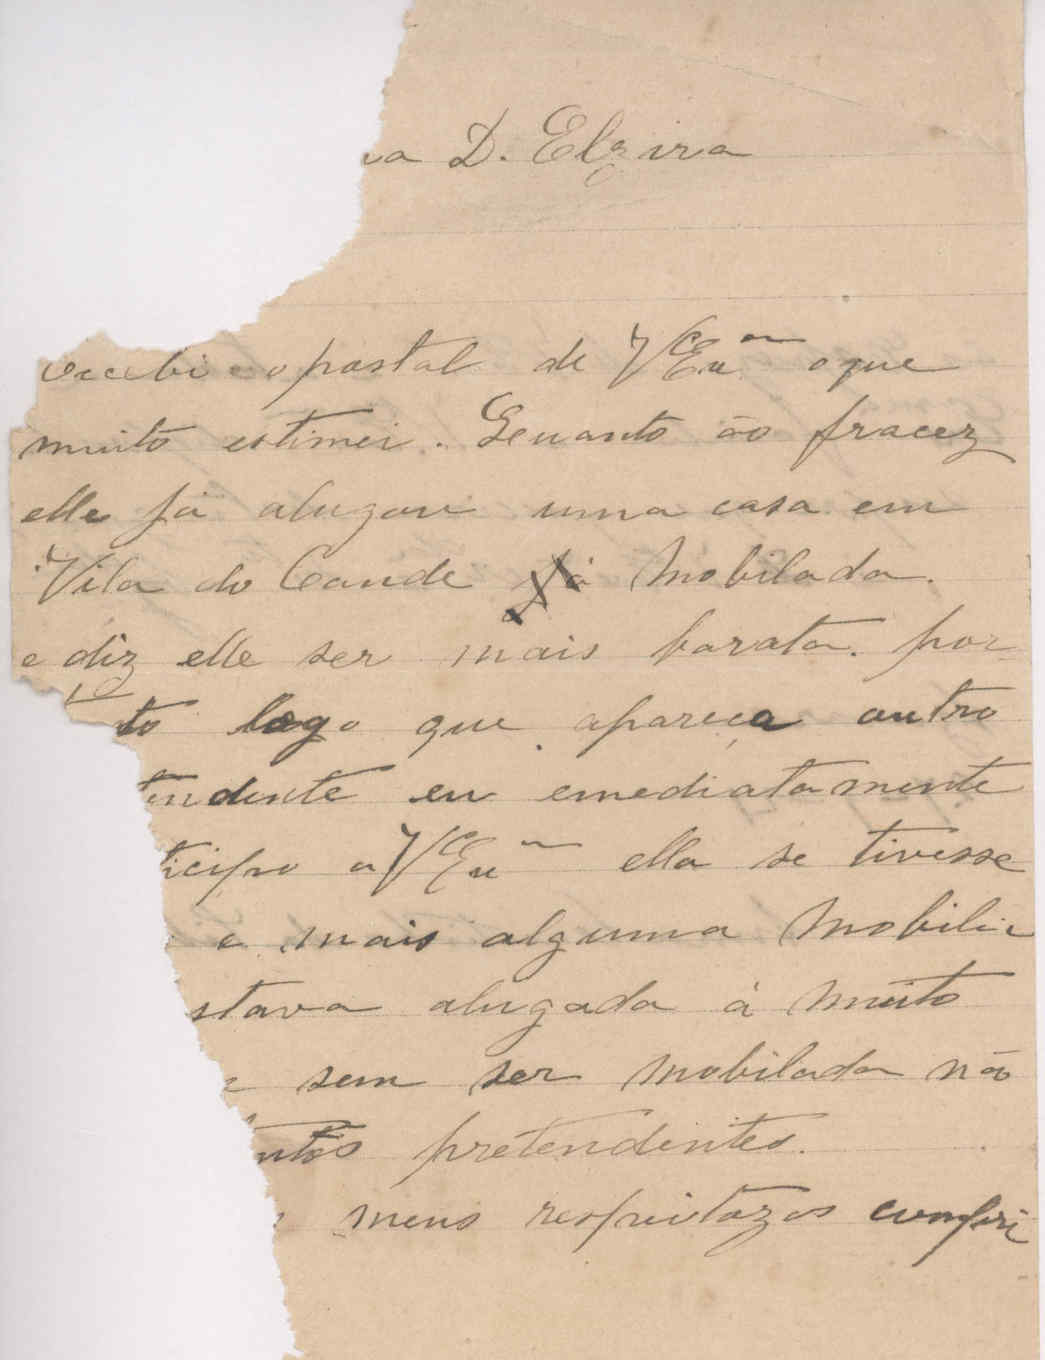 va D. Elzira
recebi o postal de VExª o que
muito estimei. Quanto ão fracez
elle já alugou uma casa em
Vila do Conde já Mobilada.
e diz elle ser mais barata. por-
to logo que apareça outro
tendente eu emediatamente
ticipo a VExª ella se tivesse
e mais alguma Mobili
stava alugada à Muito
e sem ser Mobilada não
ntos pretendentes.
meus respeitozos compri